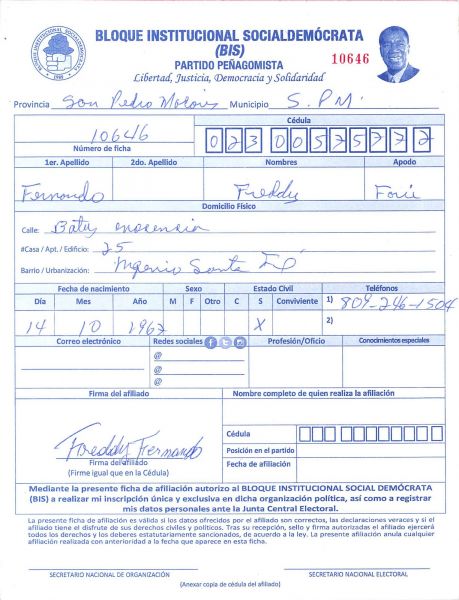 BLOQUE INSTITUCIONAL SOCIALDEMÓCRATA
(BIS)
PARTIDO PEÑAGOMISTA
10646
Libertad, Justicia, Democracia y Solidaridad
Provincia San Pedro Macoris Municipio S.P.M.
10646
Número de ficha
Cédula
023 0057577 2
1er. Apellido 2do. Apellido Nombres Apodo
Fernando Freddy
Domicilio Físico
Calle:
#Casa / Apt. / Edificio: 25
Barrio / Urbanización: Ingenio Santa Fé
Fecha de nacimiento Sexo Estado Civil Teléfonos
Día Mes Año M F Otro C S Conviviente 1) 809-246-1504
14 10 1967 X 2)
Correo electrónico Redes sociales Profesión/Oficio Conocimientos especiales
@
@
@
Firma del afiliado Nombre completo de quien realiza la afiliación
Freddy Fernando
Firma del afiliado
(Firme igual que en la Cédula)
Cédula
Posición en el partido
Fecha de afiliación
Mediante la presente ficha de afiliación autorizo al BLOQUE INSTITUCIONAL SOCIAL DEMÓCRATA
(BIS) a realizar mi inscripción única y exclusiva en dicha organización política, así como a registrar
mis datos personales ante la Junta Central Electoral.
La presente ficha de afiliación es válida si los datos ofrecidos por el afiliado son correctos, las declaraciones veraces y si el
afiliado tiene el disfrute de sus derechos civiles y políticos. Tras su recepción, sello y firma autorizadas el afiliado ejercerá
todos los derechos y los deberes estatutariamente sancionados, de acuerdo a la ley. La presente afiliación anula cualquier
afiliación realizada con anterioridad a la fecha que aparece en esta ficha.
SECRETARIO NACIONAL DE ORGANIZACIÓN SECRETARIO NACIONAL ELECTORAL
(Anexar copia de cédula del afiliado)